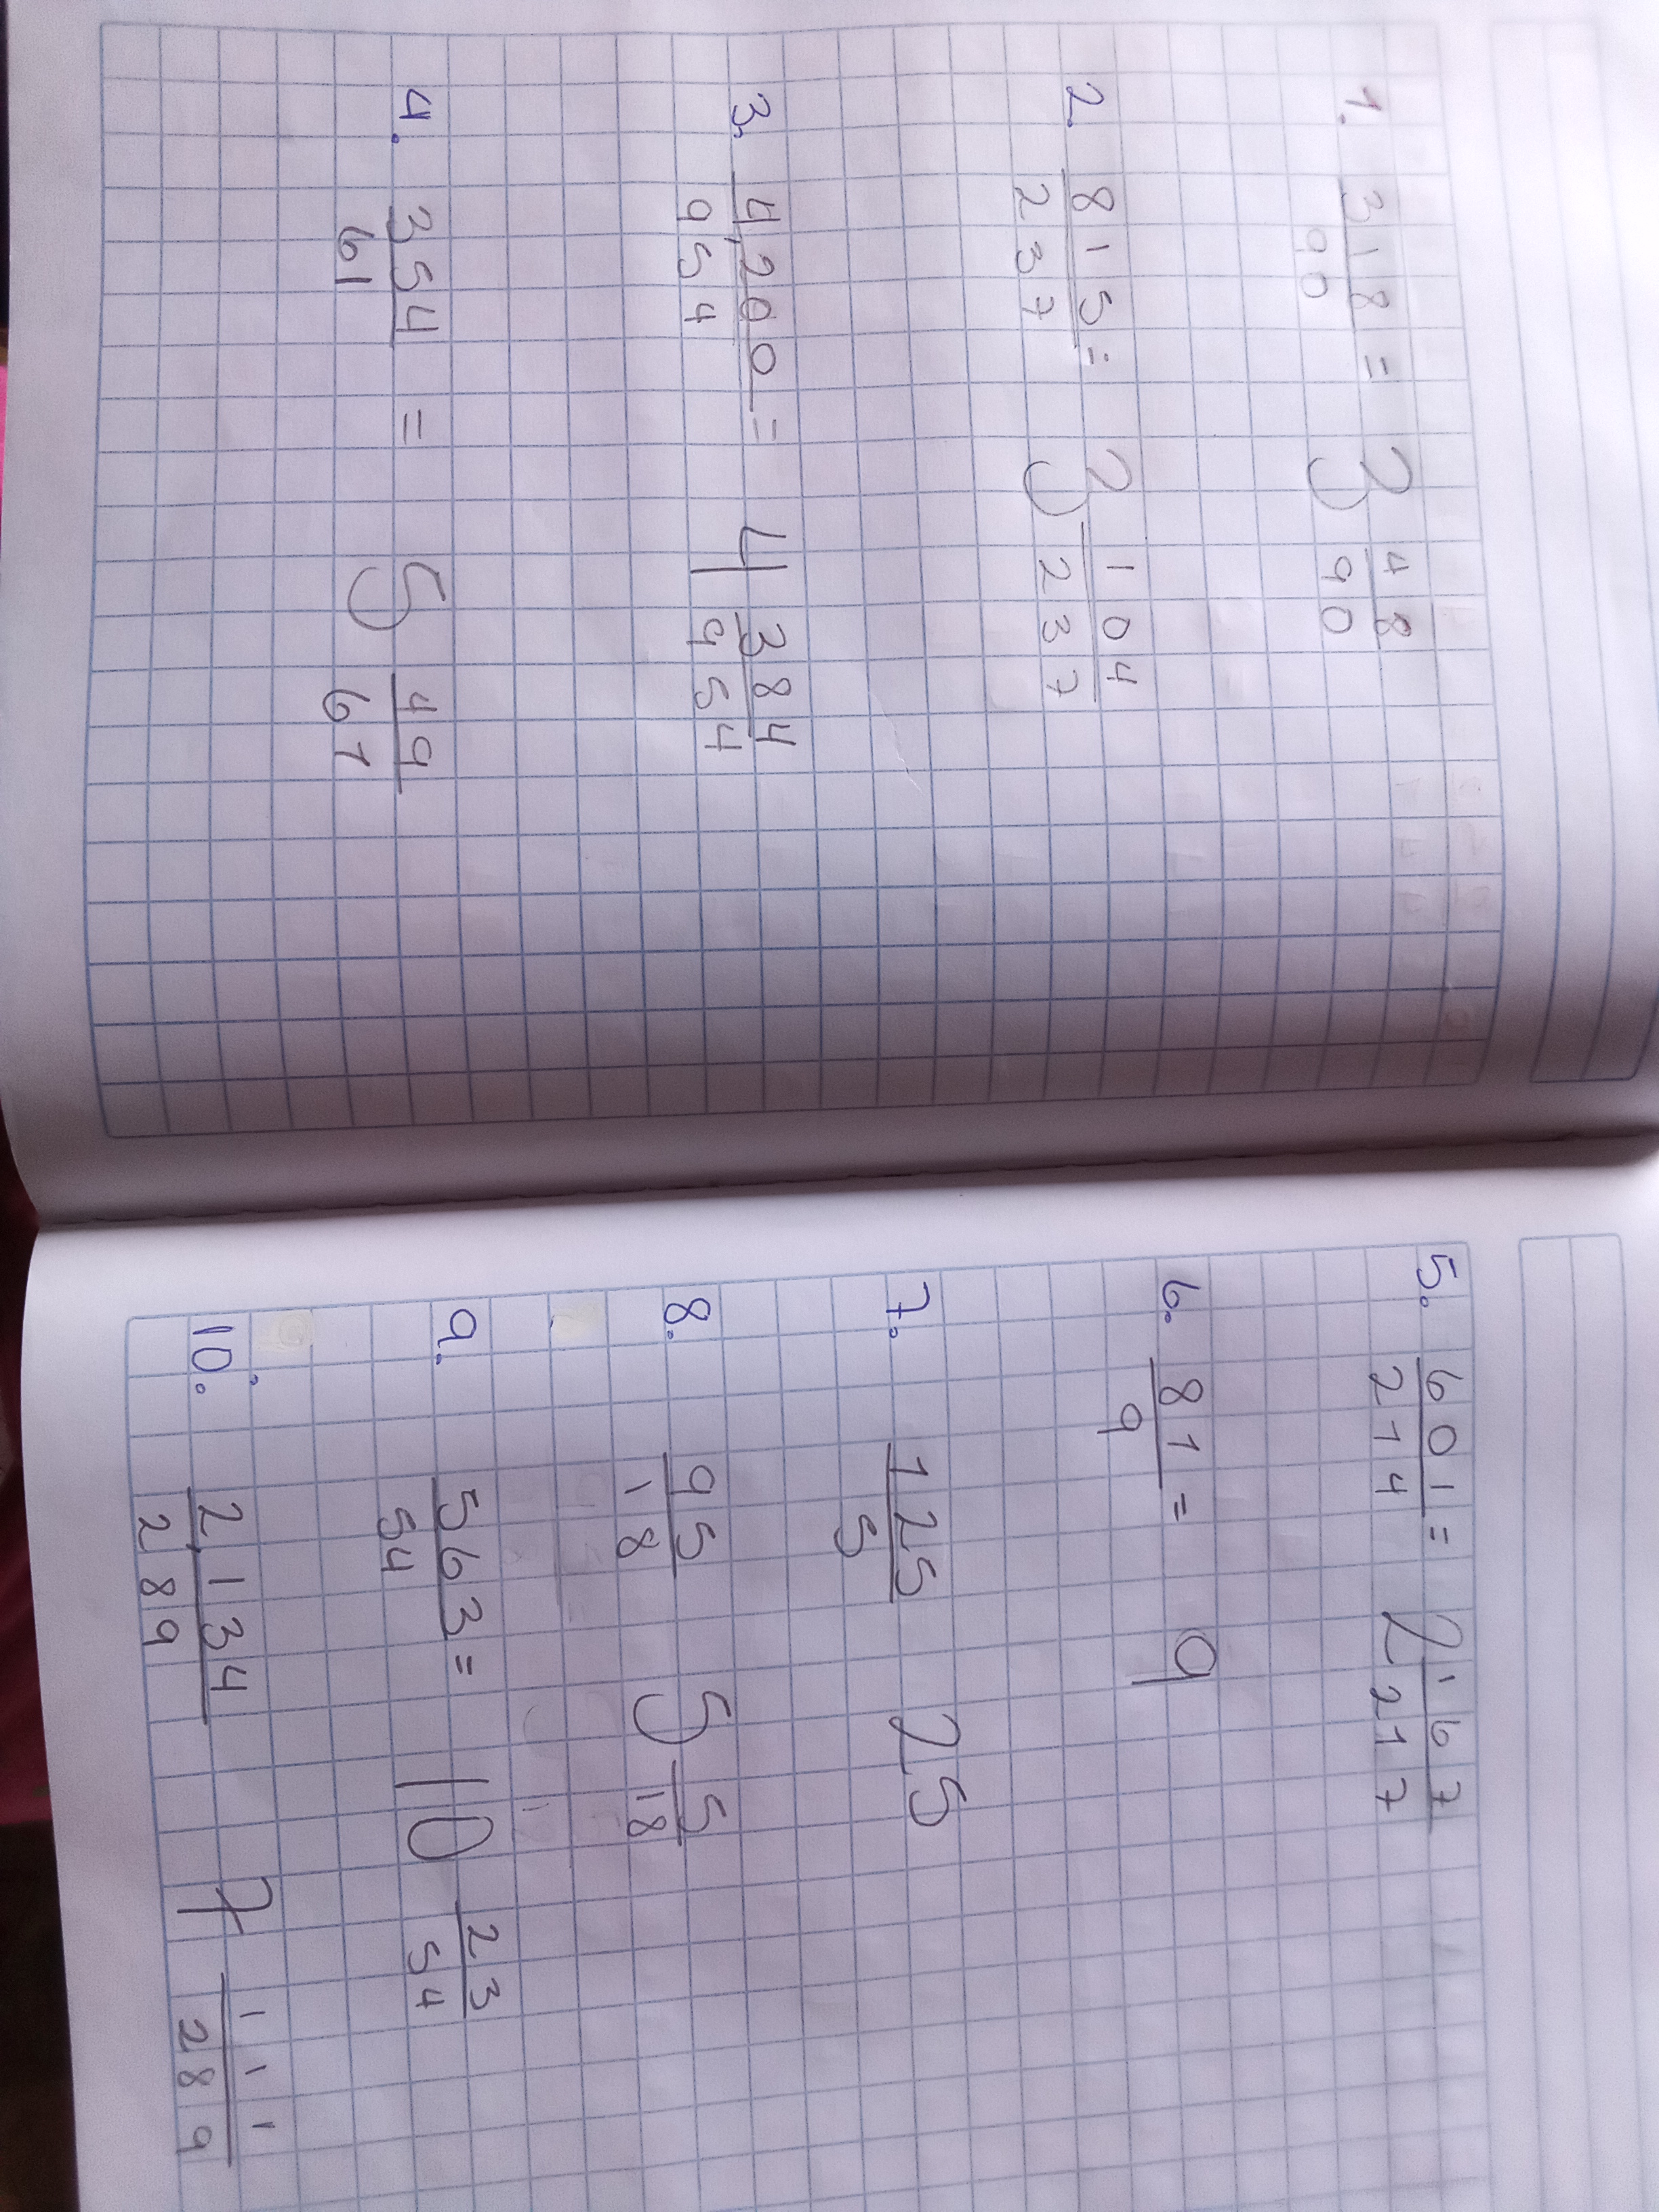 1. 318/90 = 3 48/90
2. 815/237 = 3 104/237
3. 4,200/954 = 4 384/954
4. 354/61 = 5 49/61
5. 601/214 = 2 167/217
6. 81/9 = 9
7. 125/5 25
8. 95/18 5 5/18
9. 563/54 = 10 23/54
10. 2,134/289 7 111/289